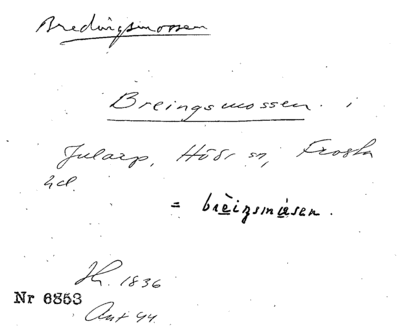 Bredingsmossen
Breingsmossen. i
Jularp, Höörs sn, Frosta
hd.
= brèiŋsmåsen.
1836
Nr 6853
Ant 44.